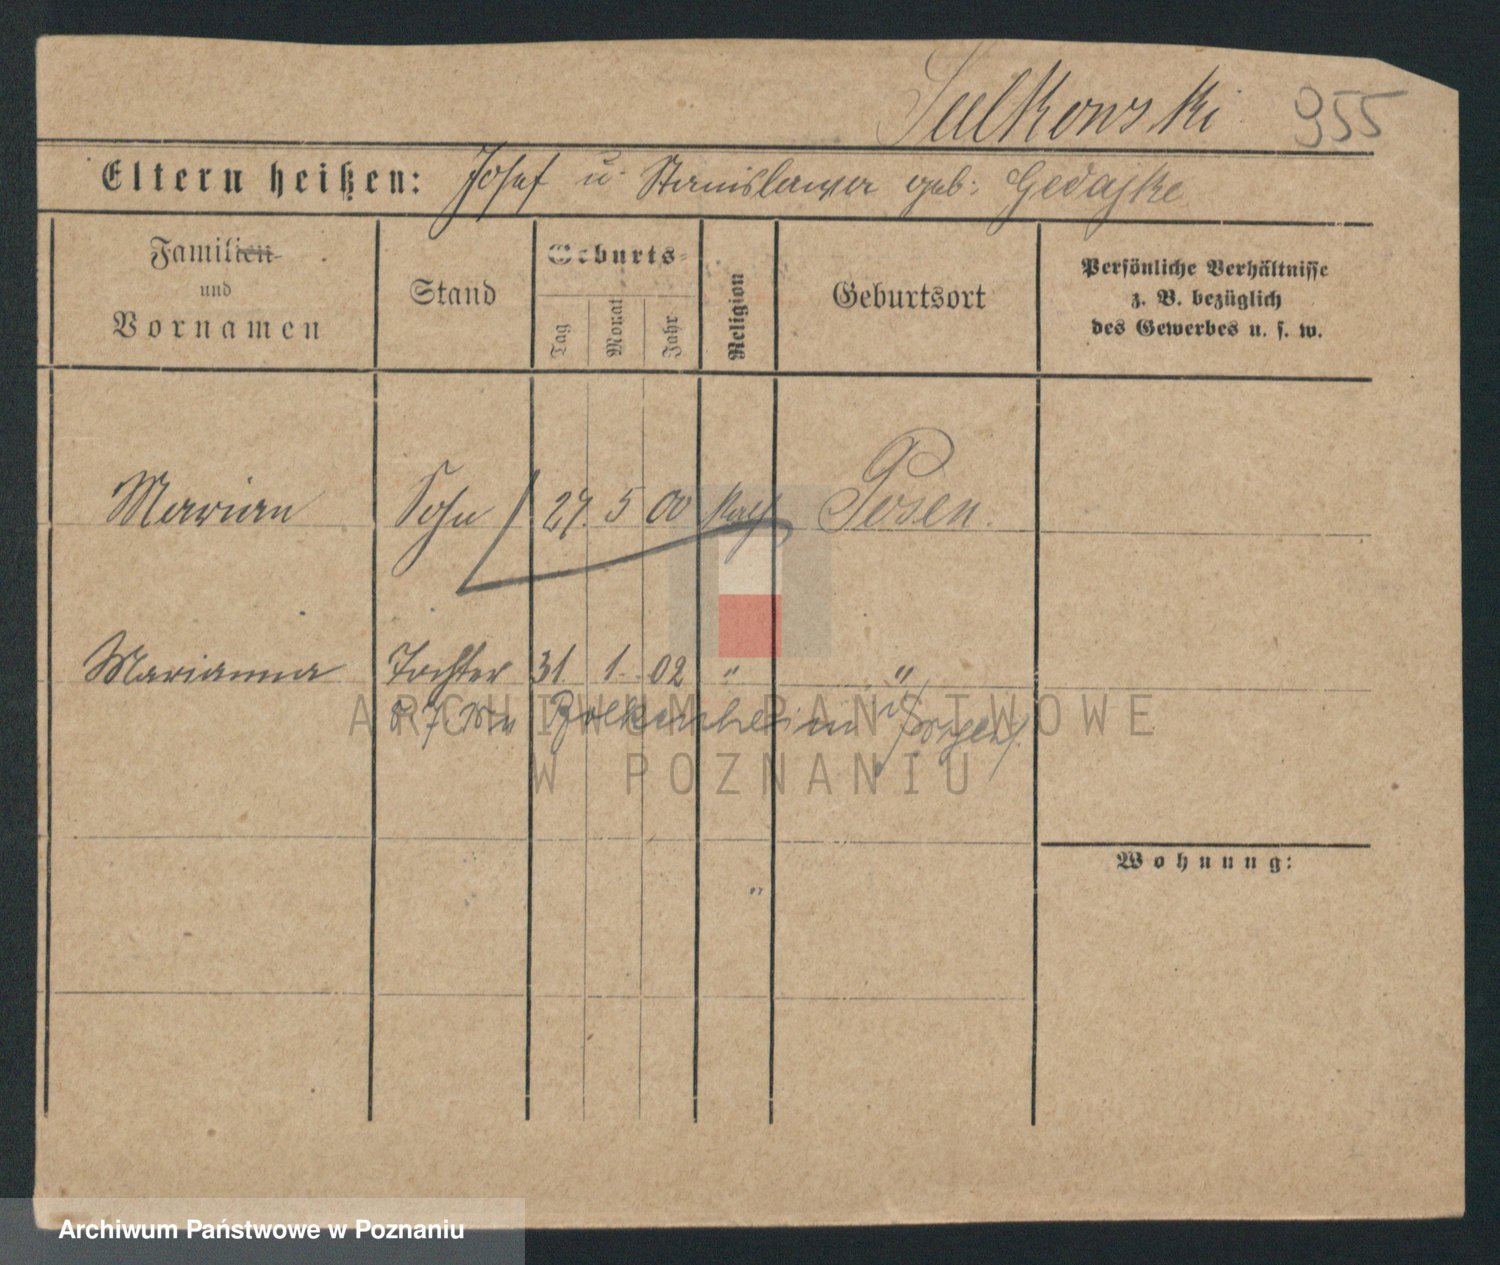 Sulkowski 955
Eltern heißen: Josef u. Stanislawa geb: Gedajke
Familien-
und
Vornamen
Stand
Geburts-
Tag
Monat
Jahr
Religion
Geburtsort
Persönliche Verhältnisse
z. B. bezüglich
des Gewerbes u. s. w.
Marian Sohn 27. 5 00 Kath Posen.
Marianna Tochter 31. 1. 02 " "
ARCHIWUM PAŃSTWOWE
W POZNANIU
Wohnung:
"
Archiwum Państwowe w Poznaniu